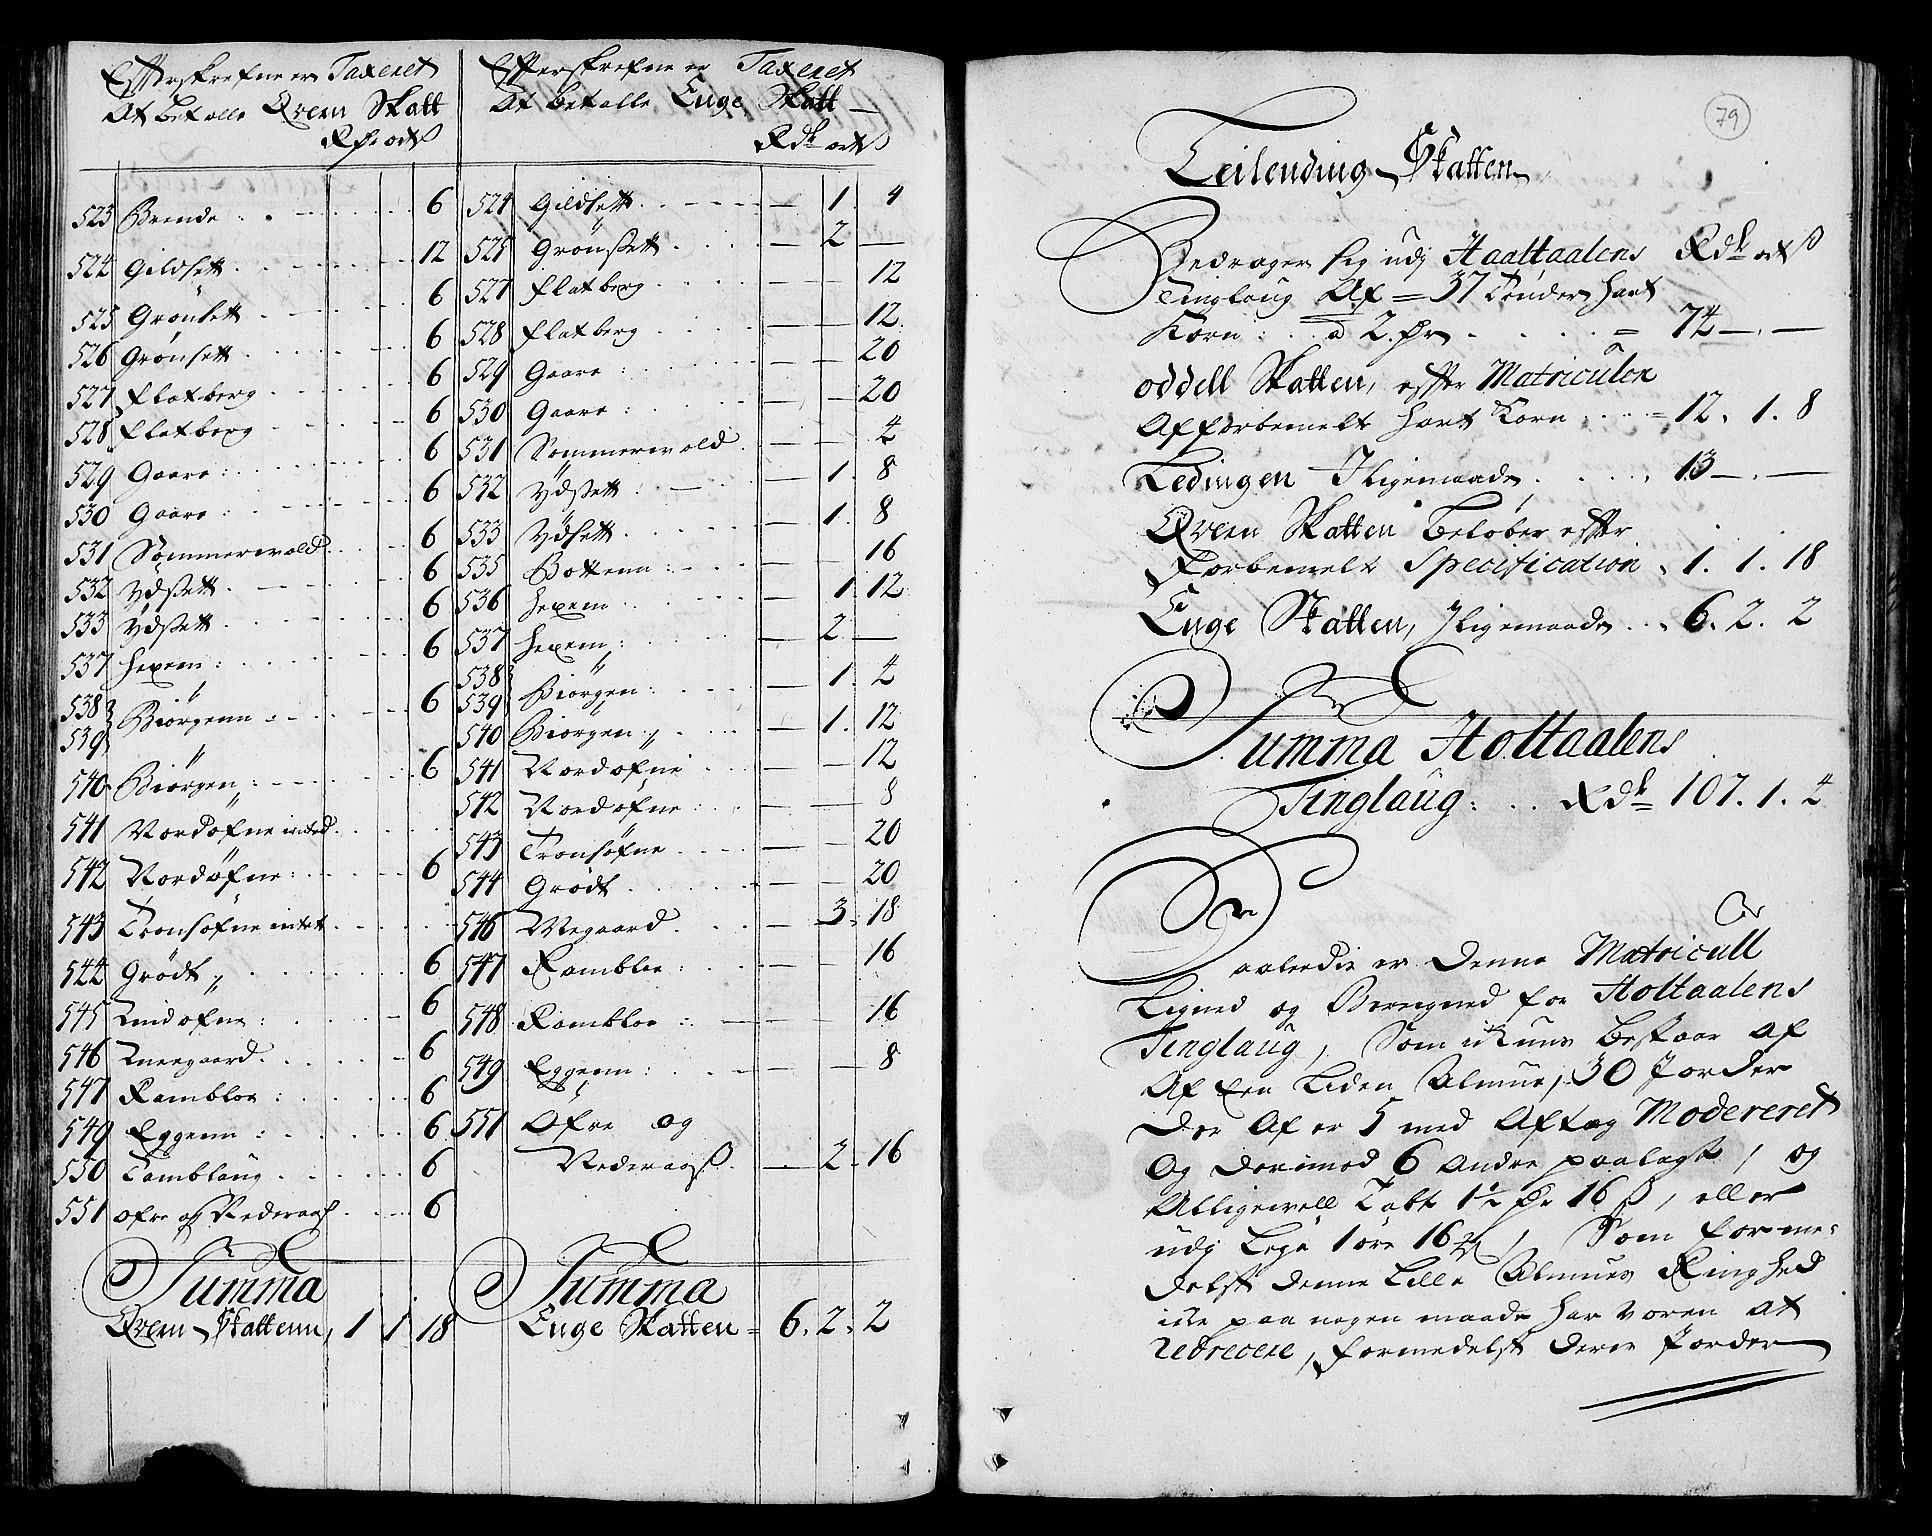 Efterskrefne er Taxeret
At betalle Qvern Skatt
Rdr ort ß
523 Brende 6
524 Gildsett 12
525 Grönsett 6
526 Grönsett 6
527 Flatberg 6
528 Flatberg 6
529 Gaare 6
530 Gaare 6
531 Sommerwold 6
532 Ydsett 6
533 Ydsett 6
537 Hexem 6
538
539 Biörgenn 6
540 Biörgen 6
541 Nordöfne inted
542 Nordöfne 6
543 Tronsöfne intet
544 Grödt 6
545 6
546 6
547 Rambloe 6
549 Eggenn 6
550 Tamblaug 6
551 öfre og Nederaas 6
Summa
Qvern Skattenn, 1 1 18
Efterskrefne er Taxeret
At betalle Enge Skatt
Rdr ort ß
524 Gildsett 1. 4
525 Grönsett 2
527 Flatberg 12
528 Flatberg 12
529 Gaare 20
530 Gaare 20
531 Sommerwold 4
532 Ydsett 1. 8
533 Ydsett 1. 8
535 Bottenn 16
536 Hexem 1. 12
537 Hexem 2
538
539 Biörgen 1. 4
540 Biörgen 1. 12
541 Nordöfne 12
542 Nordöfne 8
543 Tronsöfne 20
544 Grödt 20
546 Wegaard 3. 18
547 Rambloe 16
548 Rambloe 16
549 Eggenn 8
551 Öfre og
Nederaaß 2. 16
Summa
Enge Skatten 6. 2. 2
79
Leilending Skatten
Bedrager sig udj Haaltaalens Rdr ort ß
Tinglaug Af 37 Tönder Hart
Korn à 2. Ør 74
oddell Skatten, efter Matriculen
Af forbemelte Hart Korn 12. 1. 8
Ledingen Iligemaade 13
Qvern Skatten Belöber efter
Forbemelte Specification 1. 1. 18
Enge Skatten, Iligemaade 6. 2. 2
Summa Holtaalens
Tinglaug: Rdr 107. 1. 4
Saaledis er Denne Matricull
Ligned og Beregned for Holtaalens
Tinglaug, Som ikuns Bestaar af
Af Een Liden Almue, 30 Jorder
Der Af er 5 med Aftag Modereret
Og Derimod 6 Andre paalagt, og
Alligewell Tabt 1½ Ør 16 ß, eller
udj Leye 1 öre 16, Som forme-
delst denne Lille Almues Ringhed
icke paa nogen maade har voren at
Redrecere, formedelst deres Jorder